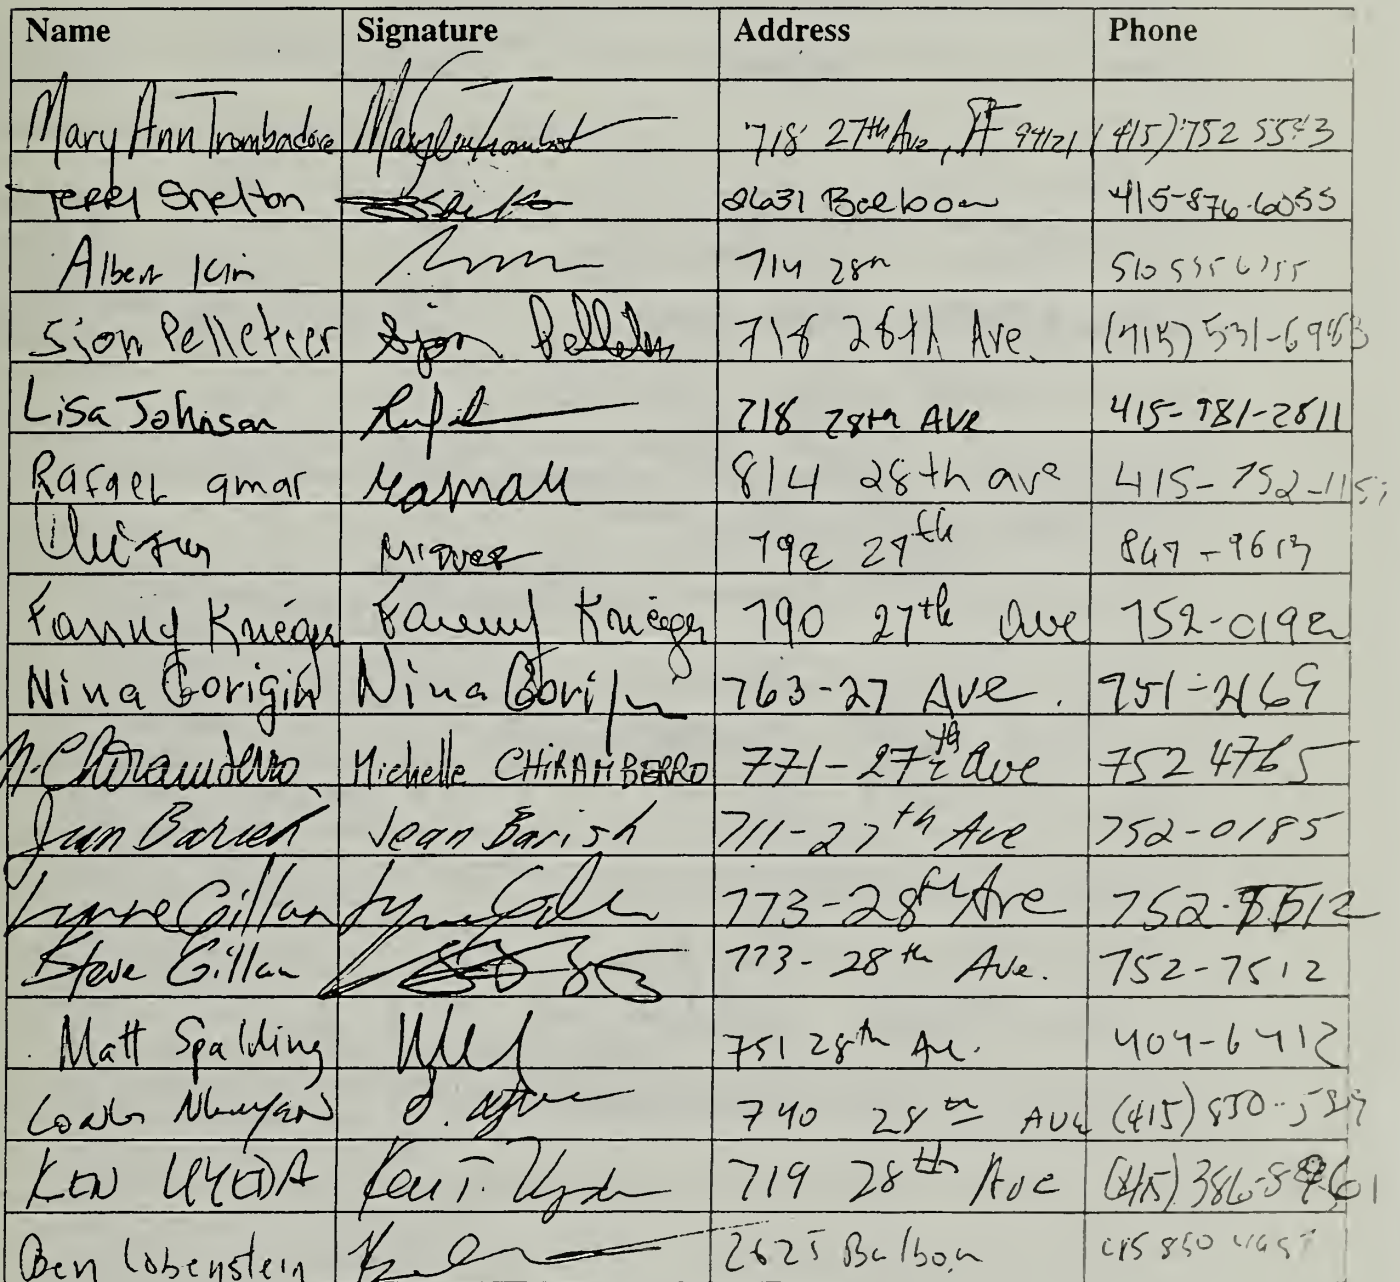 Name Signature Address Phone
Mary Ann Trombadore 718 27th Ave, SF 94121 (415) 752 5543
Terri Shelton 2631 Balboa 415-876-6055
Albert Kim 714 28th 510
Sion Pelletier Sion Pelletier 718 28th Ave. (415) 531-6983
Lisa Johnson 718 28th AVE 415-981-2811
Rafael amar 814 28th ave 415-752-115
792 27th 847-9617
Fanny Krieger Fanny Krieger 790 27th Ave 752-0192
Nina Gorigin Nina Gorigin 763-27 AVE. 751-2169
M. Chiramberro Michelle CHIRAMBERRO 771-27th ave 752 4765
Jean Barish Jean Barish 711-27th Ave 752-0185
Lynne Gillan Lynne Gillan 773-28th Ave 752-7512
Steve Gillan 773-28th Ave. 752-7512
Matt Spalding 751 28th Av. 404-6412
740 28th AVE (415) 850-
KEN UYEDA Ken T. Uyeda 719 28th Ave (415) 386-
Ben Lobenstein 2625 Balboa 415 850